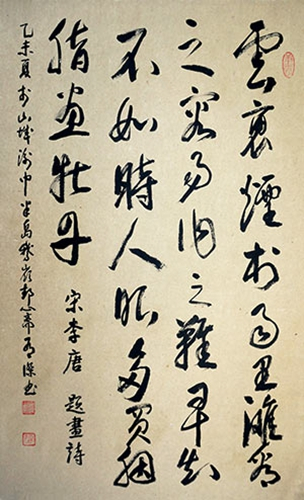 雲裏煙村雨里灘看
之容易作之難早知
不如時人眼多買胭
脂畫牡丹 宋李唐 題畫詩
乙未夏於山城渝中半島